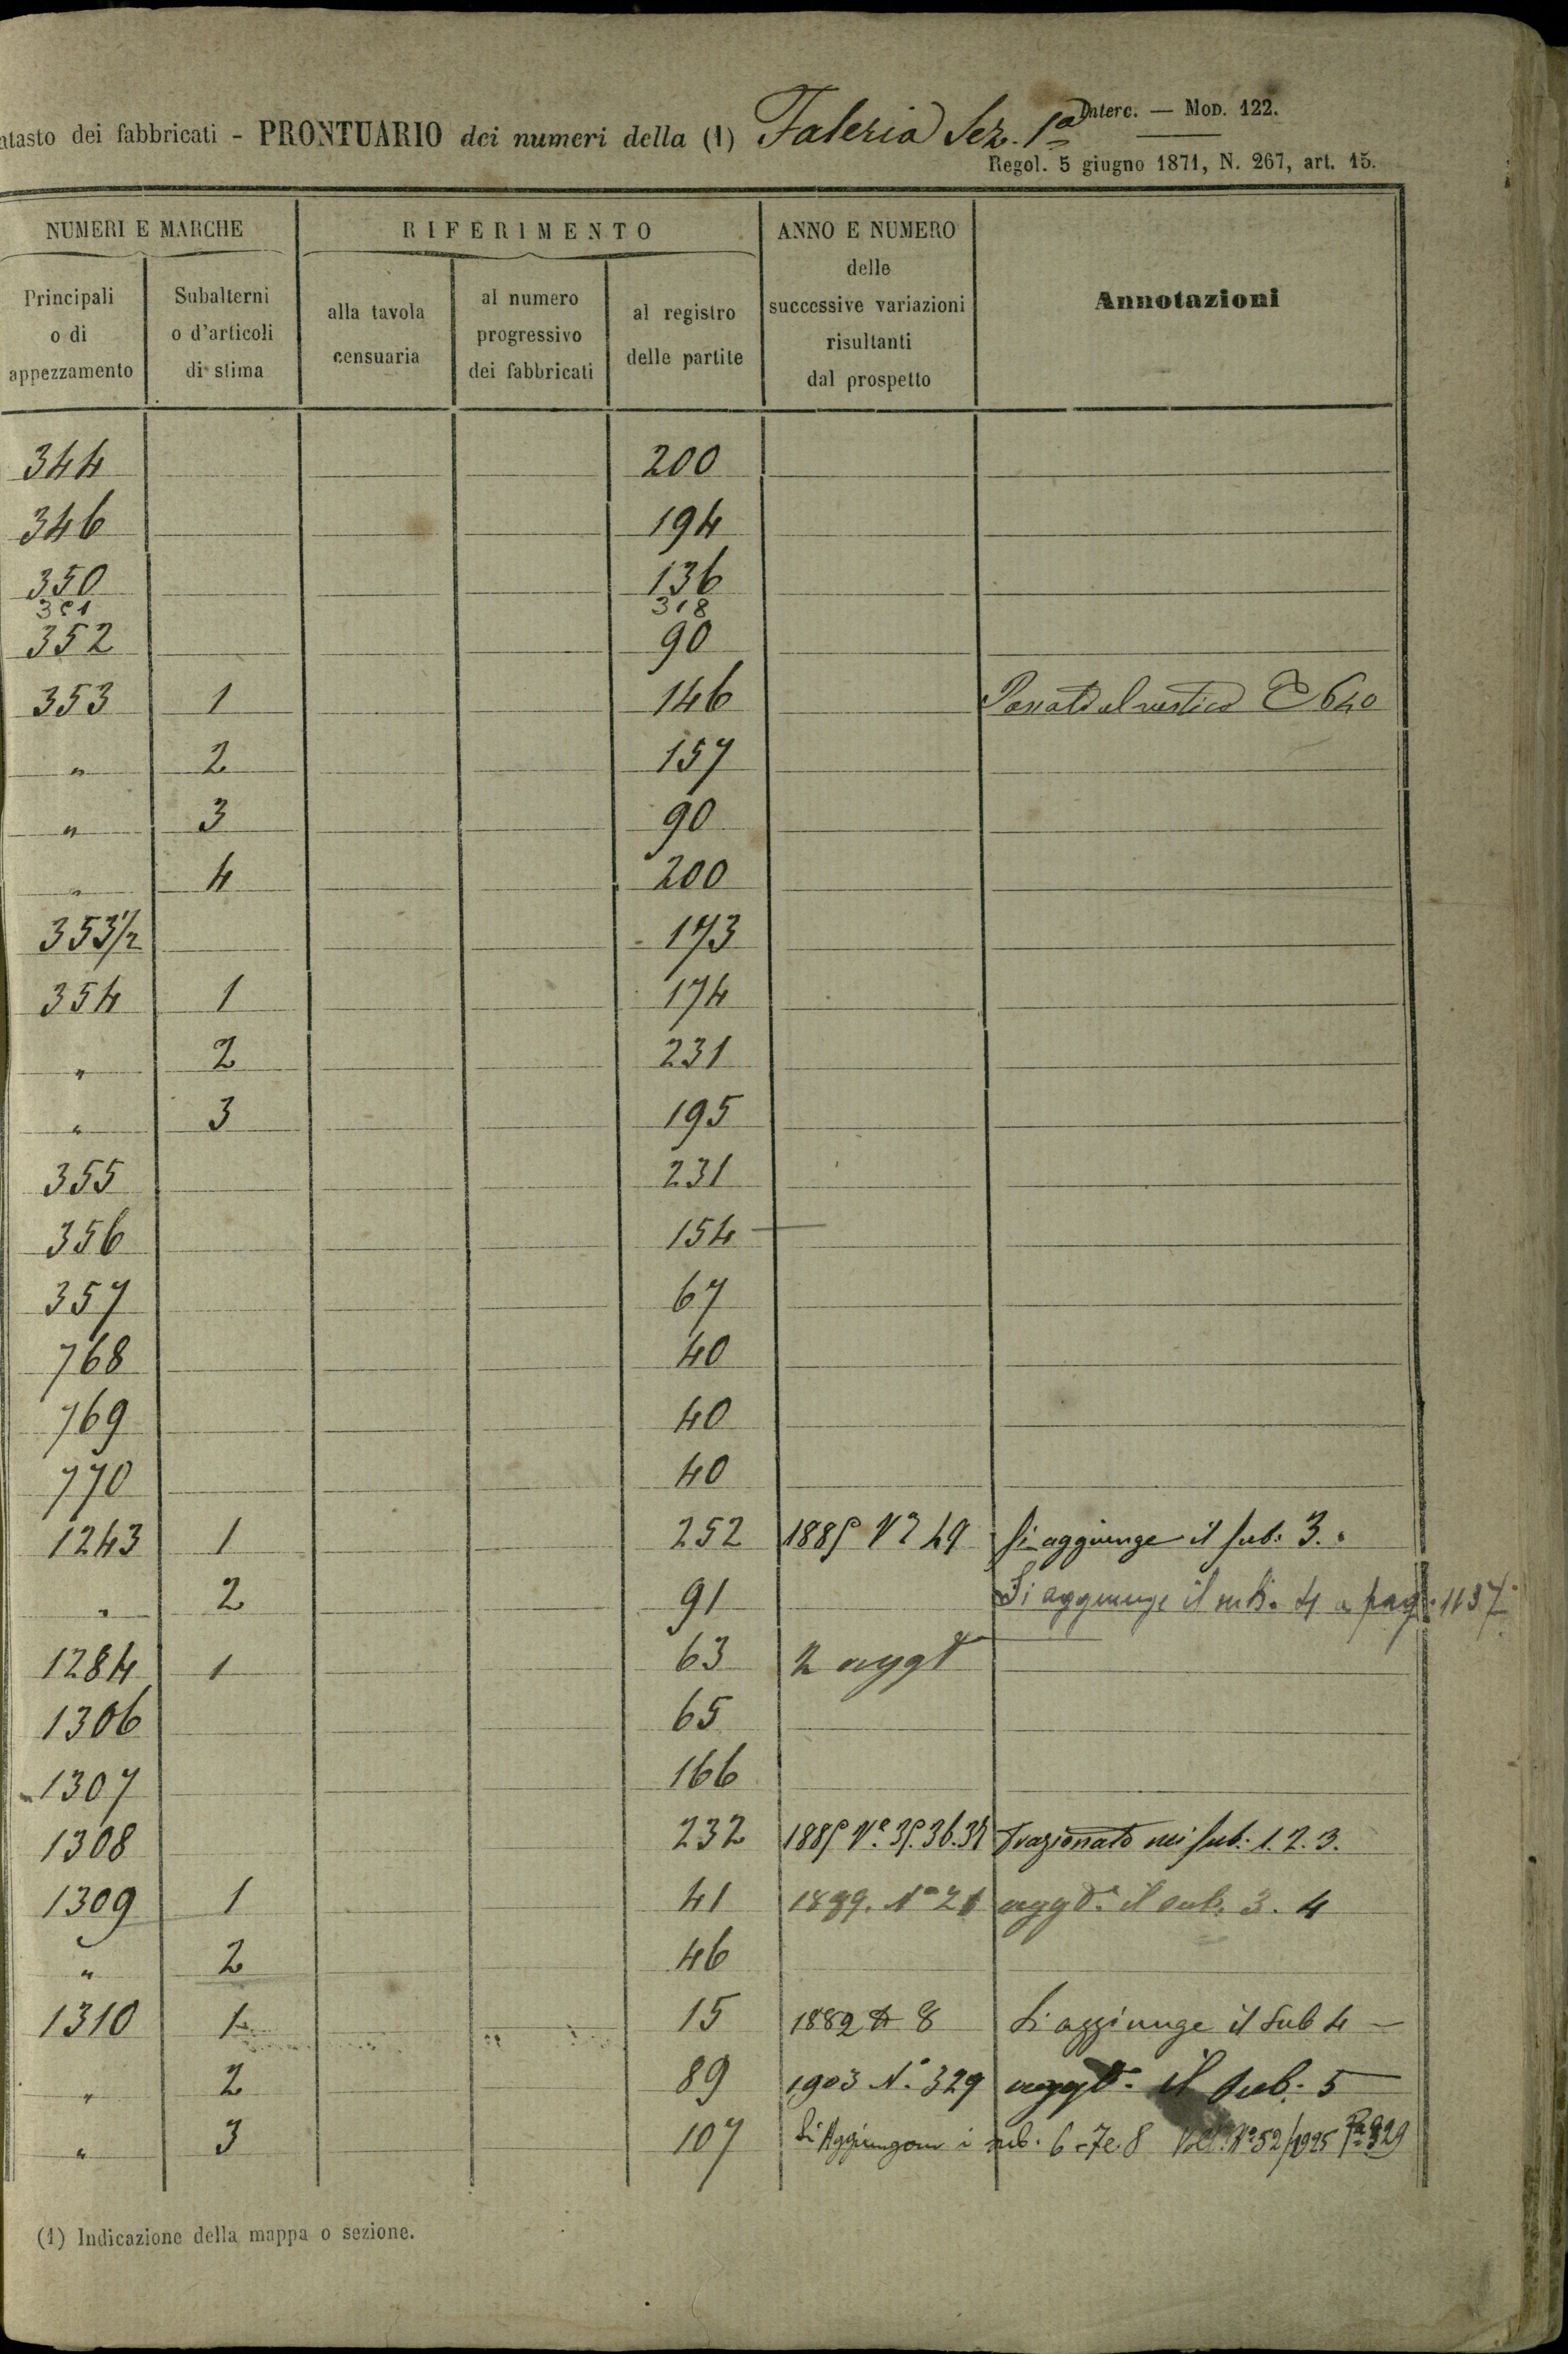 atasto dei fabbricati - PRONTUARIO dei numeri della (1) Faleria Sez. 1a Interc. — MOD. 122.
Regol. 5 giugno 1871, N. 267, art. 15.
NUMERI E MARCHE RIFERIMENTO ANNO E NUMERO delle successive variazioni risultanti dal prospetto Annotazioni
Principali o di appezzamento Subalterni o d'articoli di stima alla tavola censuaria al numero progressivo dei fabbricati al registro delle partite
344 200
346 194
350 136
351 318
352 90
353 1 146 Passato al rustico 640
" 2 157
" 3 90
" 4 200
353 1/2 173
354 1 174
" 2 231
" 3 195
355 231
356 154
357 67
768 40
769 40
770 40
1243 1 252 1885 N° 49 Si aggiunge il sub. 3.
" 2 91 Si aggiunge il sub. 4 a pag. 1137
1284 1 63 2 aggto
1306 65
1307 166
1308 232 1885 N°. 35.36.37 Frazionato nei sub. 1. 2. 3.
1309 1 41 1899. N° 21 aggto. il sub. 3. 4
" 2 46
1310 1 15 1882 8 Si aggiunge il Sub 4 —
" 2 89 1903 N.° 329 aggto. il sub. 5
" 3 107 Si Aggiungono i sub. 6 - 7 e. 8 N° 52/1925 329
(1) Indicazione della mappa o sezione.